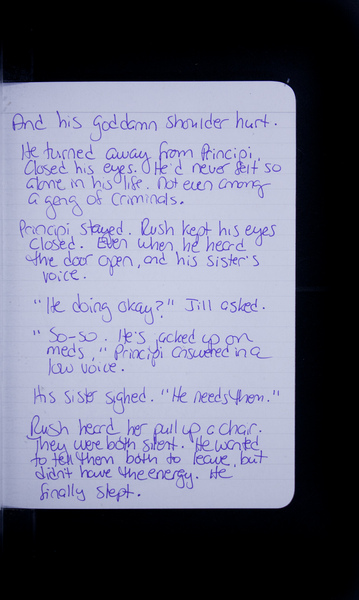 And his goddamn shoulder hurt.
He turned away from Principi,
closed his eyes. He'd never felt so
alone in his life. Not even among
a gang of criminals.
Principi stayed. Rush kept his eyes
closed. Even when he heard
the door open, and his sister's
voice.
"He doing okay?" Jill asked.
"So-so. He's jacked up on
meds," Principi answered in a
low voice.
His sister sighed. "He needs them."
Rush heard her pull up a chair.
They were both silent. He wanted
to tell them both to leave, but
didn't have the energy. He
finally slept.